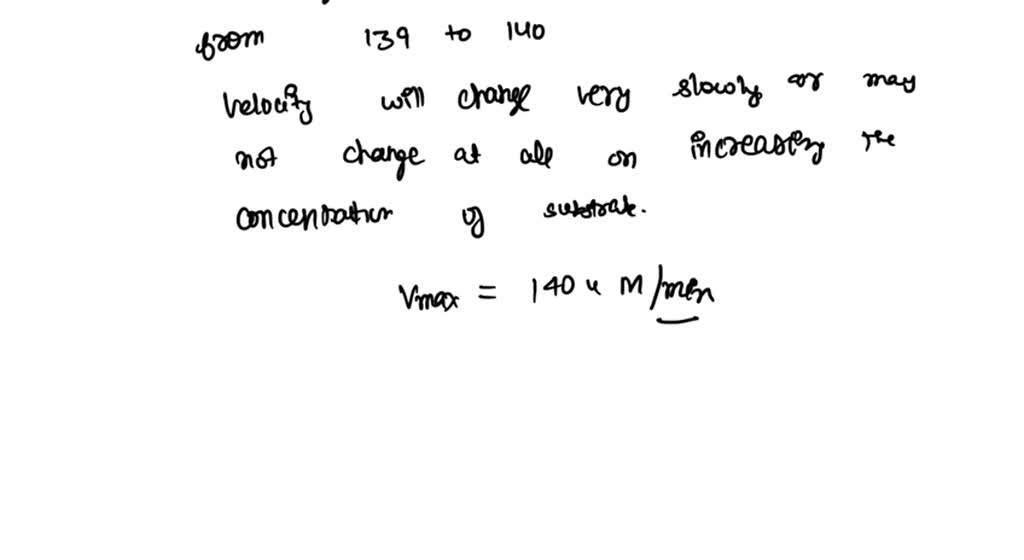 from 139 to 140
velocity will change very slowly or may
not change at all on increasing the
concentration of substrate.
Vmax = 140 u M/min